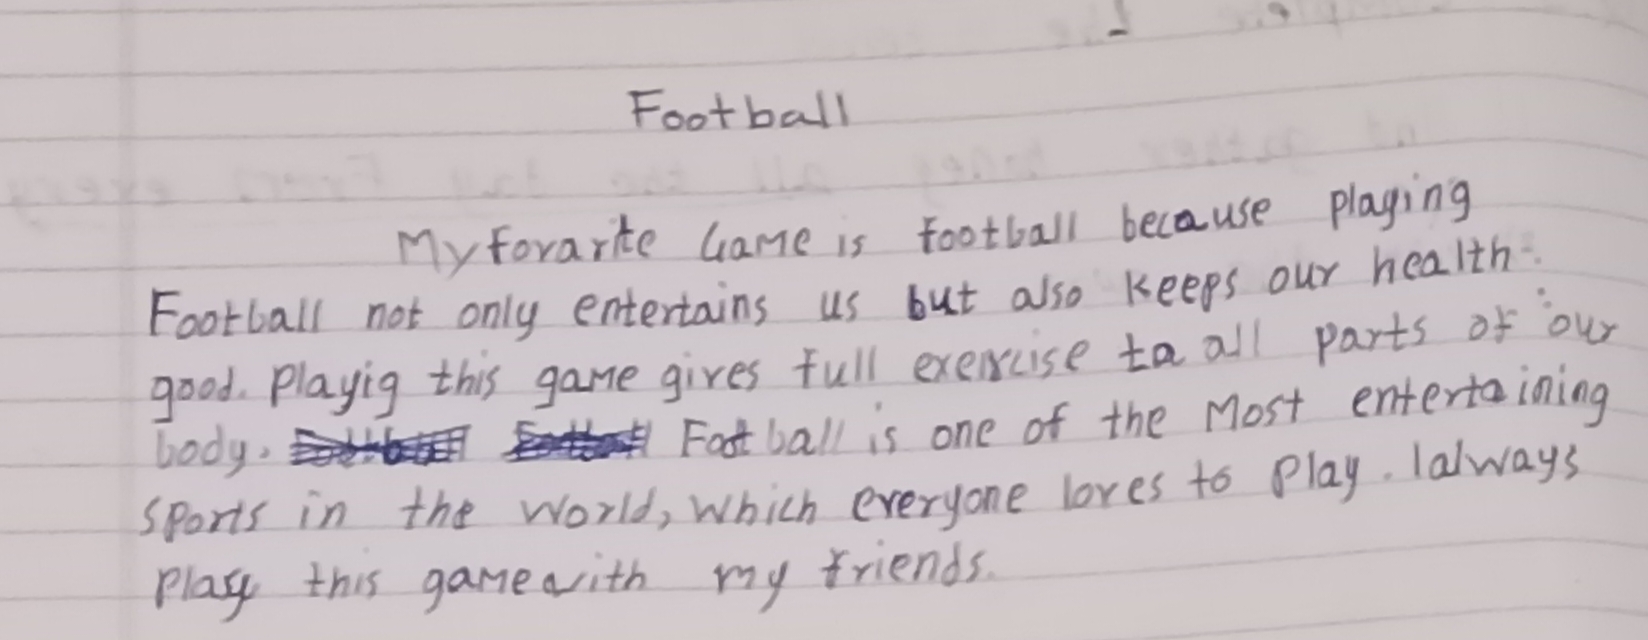 Football
My forarite Game is football because playing
Football not only entertains us but also keeps our health
good. Playig this game gives full exercise ta all parts of our
body. Football is one of the Most entertaining
sports in the world, which everyone loves to play. I always
play this game with my friends.